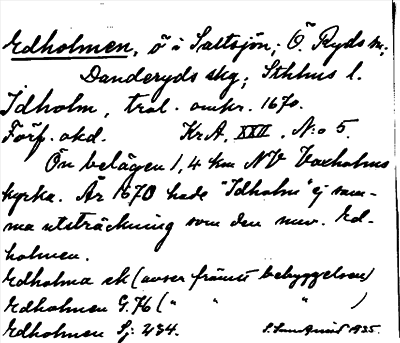 Edholmen, ö i Saltsjön; Ö. Ryds sn;
Danderyds skg; Sthlms l.
Idholm, trol. omkr. 1670.
Förf. okd. KrA. XXII. N:o 5.
Ön belägen 1,4 km NV Vaxholms
kyrka. År 1670 hade "Idholm" ej sam-
ma utsträckning som den nuv. Ed-
holmen.
Edholma sk (avser främst bebyggelsen)
Edholmen G. 76 ( " " " )
Edholmen Sj: 234.
1935.